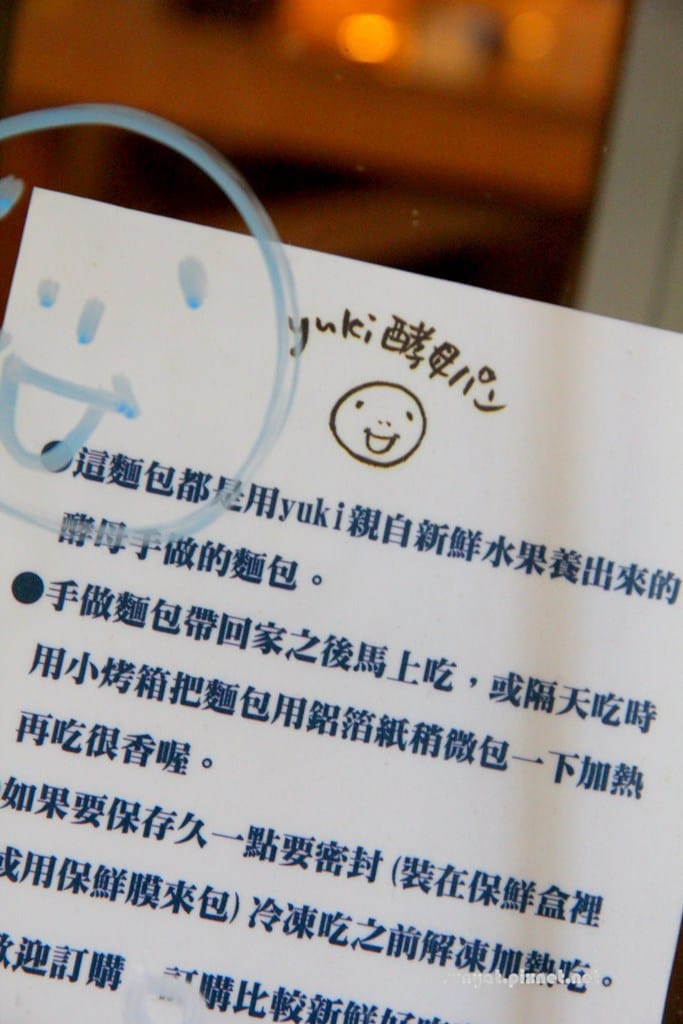 yuki酵母パン
●這麵包都是用yuki親自新鮮水果養出來的
酵母手做的麵包。
●手做麵包帶回家之後馬上吃，或隔天吃時
用小烤箱把麵包用鋁箔紙稍微包一下加熱
再吃很香喔。
如果要保存久一點要密封(裝在保鮮盒裡
或用保鮮膜來包)冷凍吃之前解凍加熱吃。
歡迎訂購 訂購比較新鮮好吃
.pixnet.net